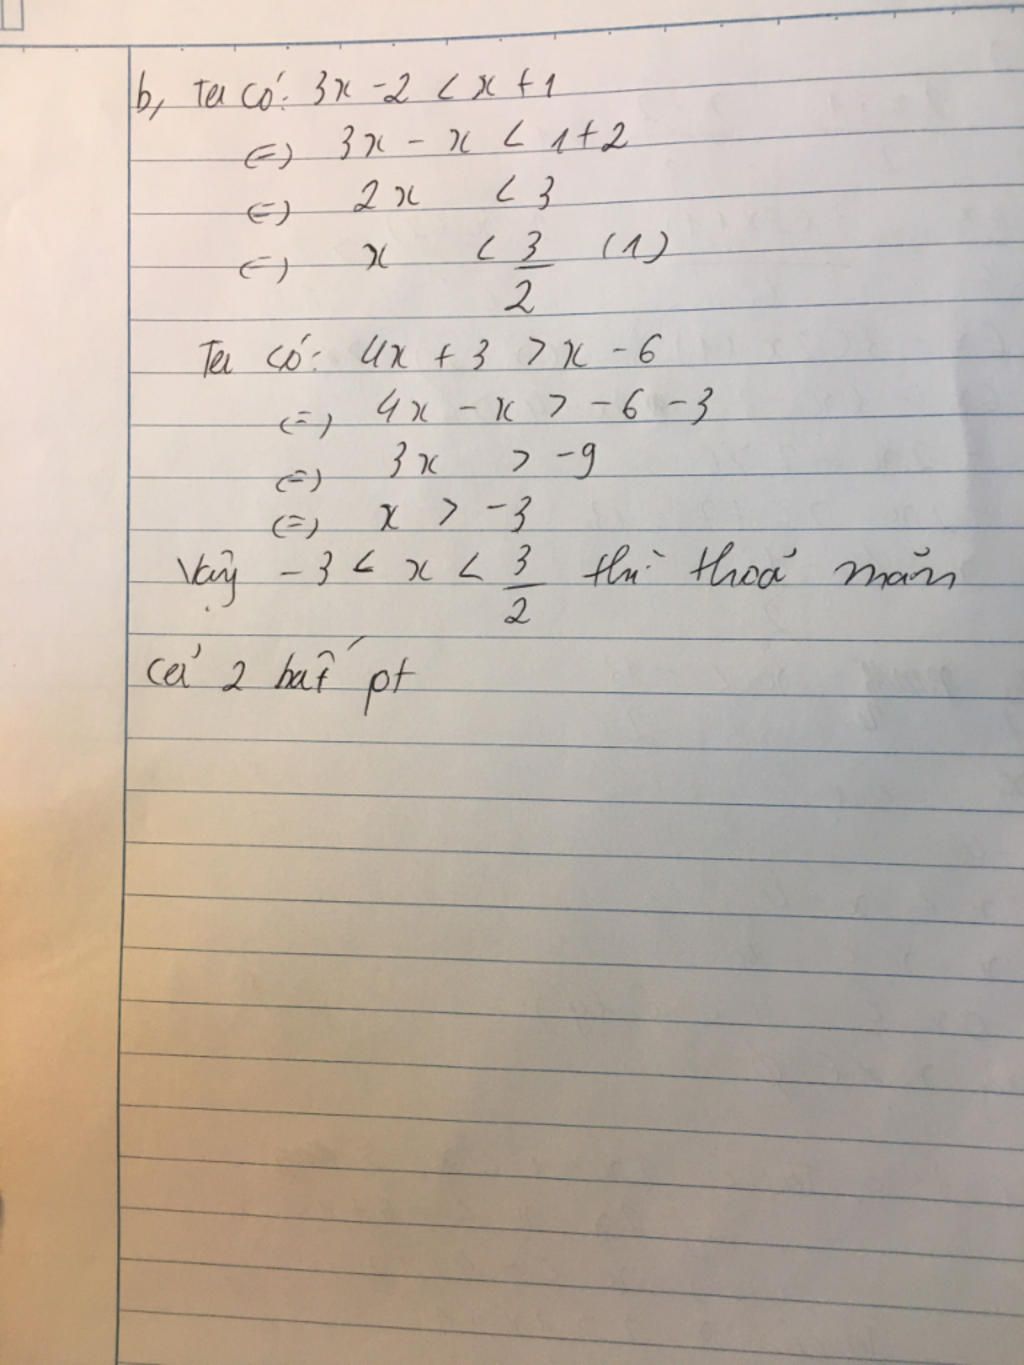 b, Ta có: 3x - 2 < x + 1
(=) 3x - x < 1+2
(=) 2x < 3
(=) x < 3/2 (1)
Ta có: 4x + 3 > x - 6
(=) 4x - x > -6 -3
(=) 3x > -9
(=) x > -3
Vậy -3 < x < 3/2 thì thoả mãn
cả 2 bất pt